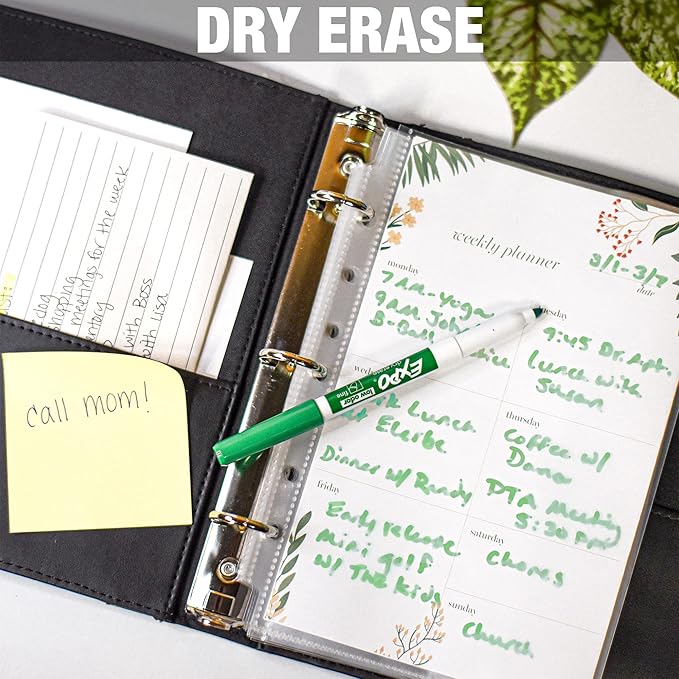 DRY ERASE
for the week
meetings
shopping
with Boss
with Lisa
call mom!
weekly planner
3/1-3/7
date
monday
7AM-Yoga
9AM
B-Ball
9:45 Dr. Apt.
Lunch with
Susan
Lunch
at
Dinner w/ Randy
thursday
Coffee w/
PTA Meeting
5:30 pm
friday
Early release
Mini golf
w/ The Kids
saturday
Chores
sunday
Church
EXPO
low odor
fine